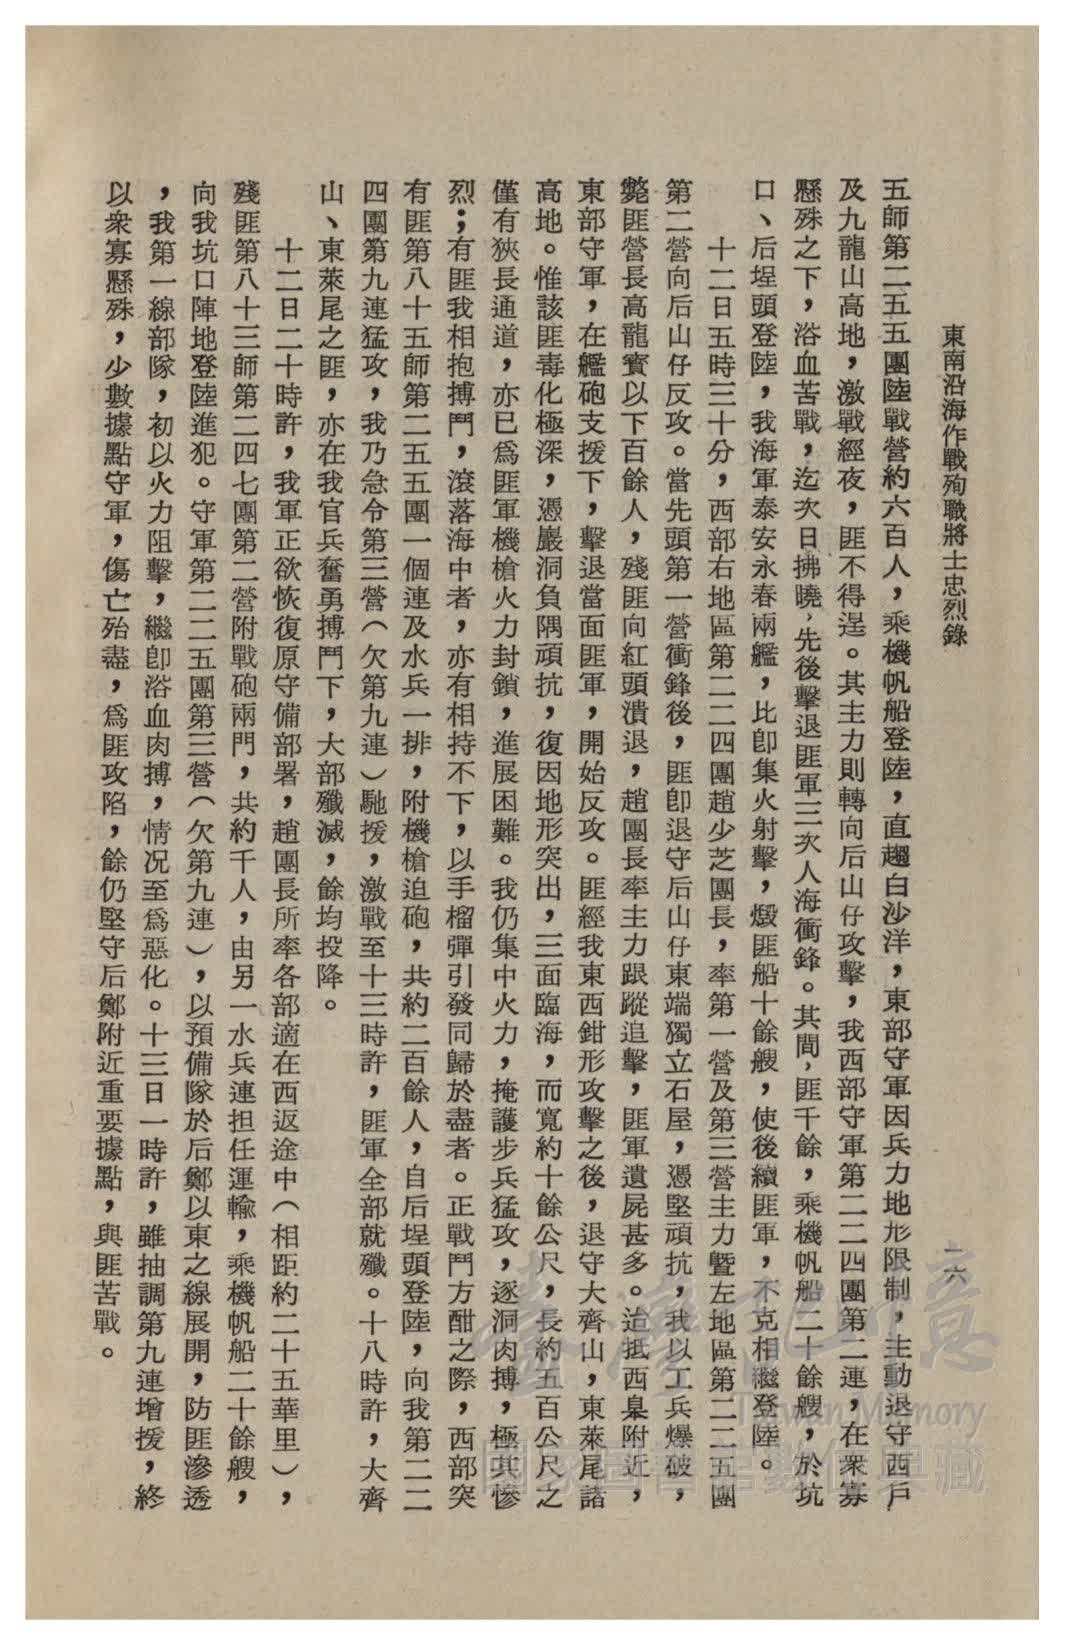 東南沿海作戰殉職將士忠烈錄
一六
五師第二五五團陸戰營約六百人，乘機帆船登陸，直趨白沙洋，東部守軍因兵力地形限制，主動退守西戶
及九龍山高地，激戰經夜，匪不得逞。其主力則轉向后山仔攻擊，我西部守軍第二二四團第二連，在衆寡
懸殊之下，浴血苦戰，迄次日拂曉，先後擊退匪軍三次人海衝鋒。其間，匪千餘，乘機帆船二十餘艘，於坑
口、后埕頭登陸，我海軍泰安永春兩艦，比卽集火射擊，燬匪船十餘艘，使後續匪軍，不克相繼登陸。
十二日五時三十分，西部右地區第二二四團趙少芝團長，率第一營及第三營主力暨左地區第二二五團
第二營向后山仔反攻。當先頭第一營衝鋒後，匪卽退守后山仔東端獨立石屋，憑堅頑抗，我以工兵爆破，
斃匪營長高龍賓以下百餘人，殘匪向紅頭潰退，趙團長率主力跟蹤追擊，匪軍遺屍甚多。迨抵西臯附近，
東部守軍，在艦砲支援下，擊退當面匪軍，開始反攻。匪經我東西鉗形攻擊之後，退守大齊山，東萊尾諸
高地。惟該匪毒化極深，憑巖洞負隅頑抗，復因地形突出，三面臨海，而寬約十餘公尺，長約五百公尺之
僅有狹長通道，亦已爲匪軍機槍火力封鎖，進展困難。我仍集中火力，掩護步兵猛攻，逐洞肉搏，極其慘
烈；有匪我相抱搏鬥，滾落海中者，亦有相持不下，以手榴彈引發同歸於盡者。正戰鬥方酣之際，西部突
有匪第八十五師第二五五團一個連及水兵一排，附機槍迫砲，共約二百餘人，自后埕頭登陸，向我第二二
四團第九連猛攻，我乃急令第三營（欠第九連）馳援，激戰至十三時許，匪軍全部就殲。十八時許，大齊
山、東萊尾之匪，亦在我官兵奮勇搏鬥下，大部殲滅，餘均投降。
十二日二十時許，我軍正欲恢復原守備部署，趙團長所率各部適在西返途中（相距約二十五華里），
殘匪第八十三師第二四七團第二營附戰砲兩門，共約千人，由另一水兵連担任運輸，乘機帆船二十餘艘，
向我坑口陣地登陸進犯。守軍第二二五團第三營（欠第九連），以預備隊於后鄭以東之線展開，防匪滲透
，我第一線部隊，初以火力阻擊，繼卽浴血肉搏，情况至爲惡化。十三日一時許，雖抽調第九連增援，終
以衆寡懸殊，少數據點守軍，傷亡殆盡，爲匪攻陷，餘仍堅守后鄭附近重要據點，與匪苦戰。
臺灣記憶
Taiwan Memory
國家圖書館數位典藏